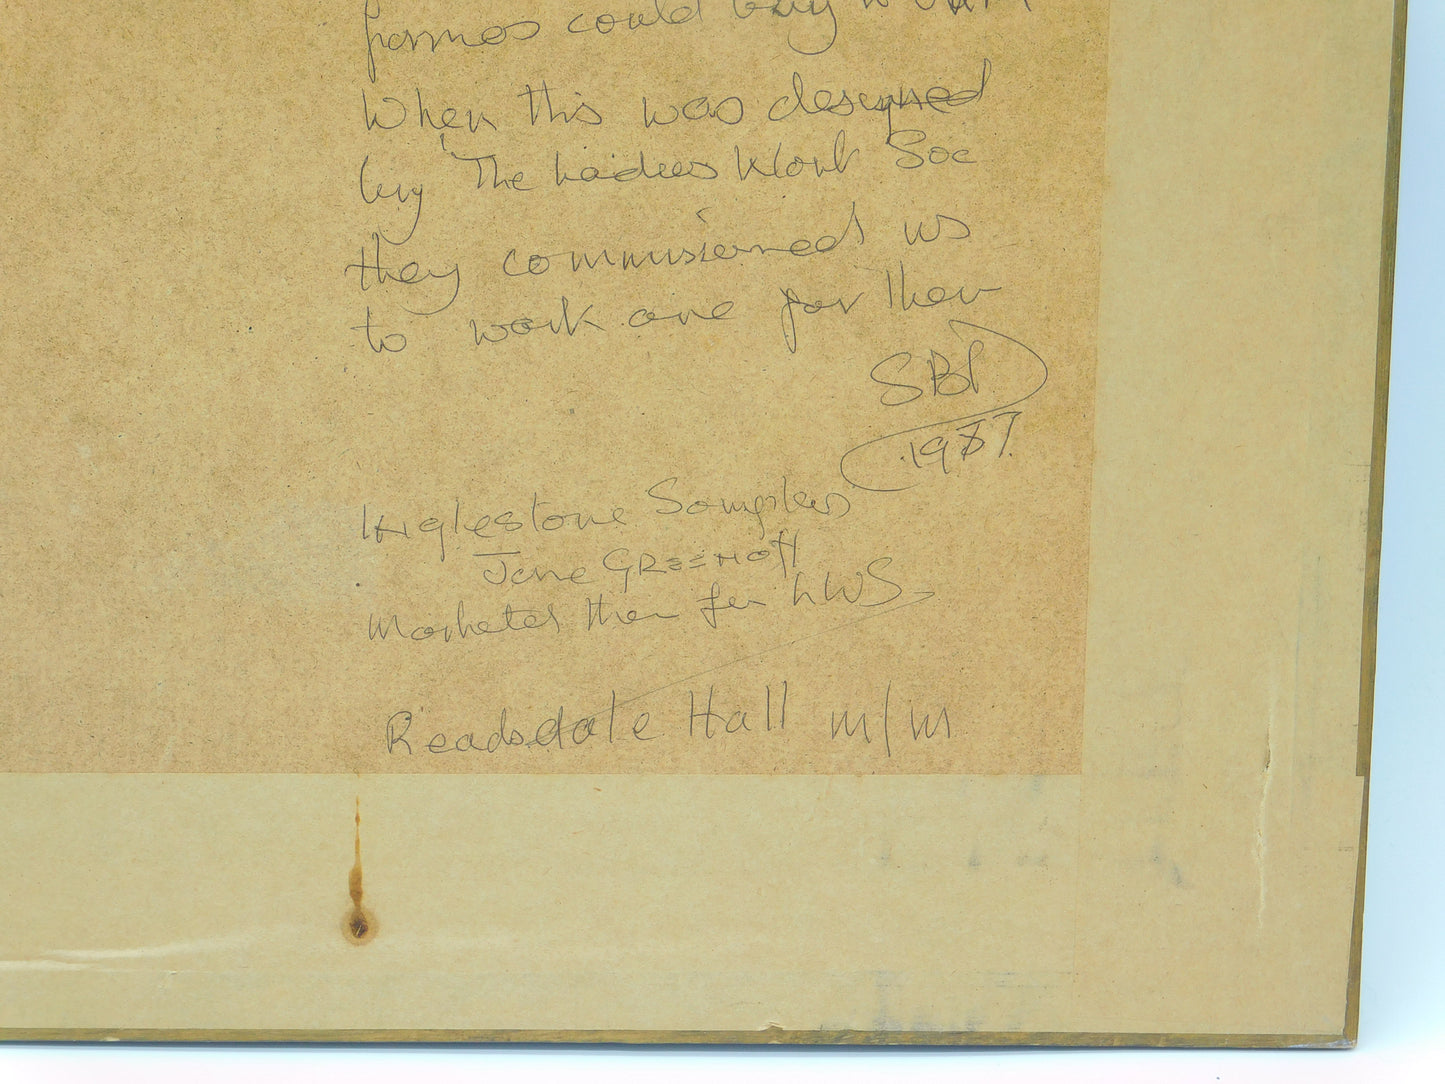 frames could buy
When this was designed
by The Ladies Work Soc
they commissioned us
to work one for Them
SBP
1987.
Inglestone Samplers
Jane GREENOff
Marketed them for LWS
Readsdale Hall m/m